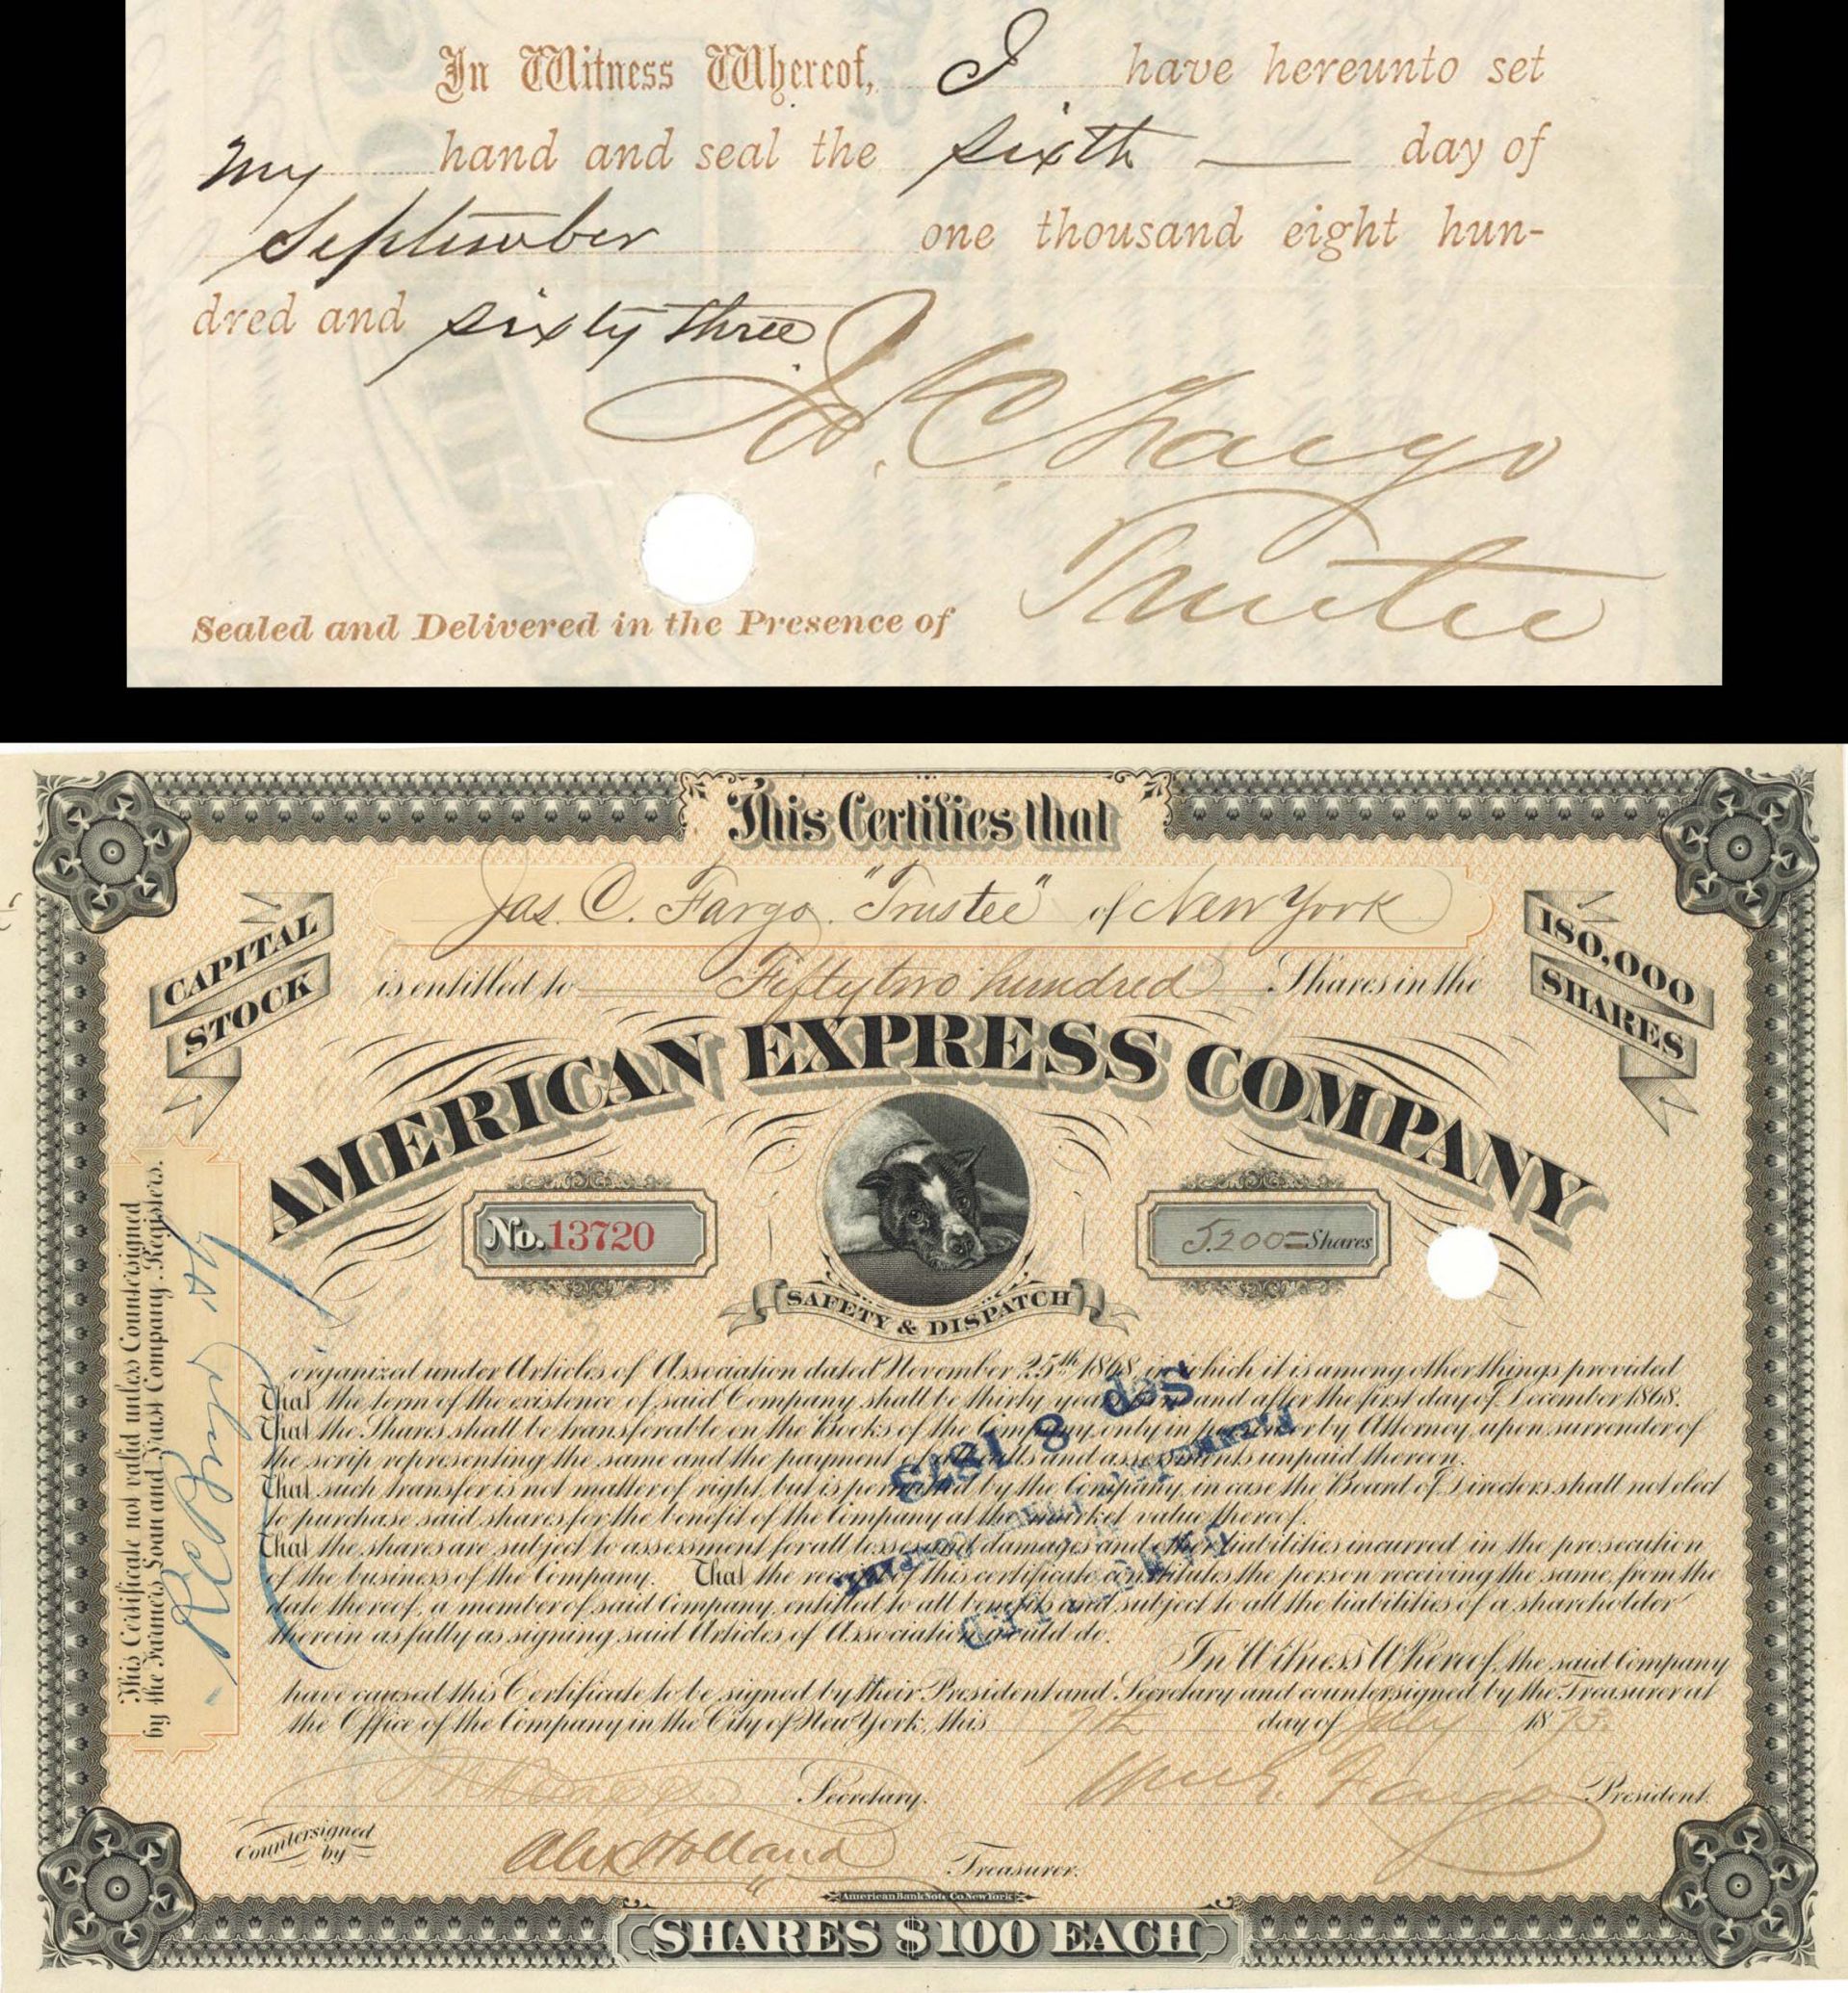 In Witness Whereof, I have hereunto set
my hand and seal the sixth day of
September one thousand eight hun-
dred and sixty three
J. C. Fargo
Trustee
Sealed and Delivered in the Presence of
This Certifies that
Jas. C. Fargo "Trustee" of New York
is entitled to Fifty two hundred Shares in the
CAPITAL STOCK
180,000 SHARES
AMERICAN EXPRESS COMPANY
No. 13720
5200 = Shares
SAFETY & DISPATCH
This Certificate not valid unless Countersigned
by the Farmers Loan and Trust Company, Registers.
organized under Articles of Association dated November 25th 1868, in which it is among other things provided
That the term of the existence of said Company shall be thirty years and after the first day of December 1868.
That the Shares shall be transferable on the Books of the Company only in person or by Attorney upon surrender of
the scrip representing the same and the payment of all debts and assessments unpaid thereon.
That such transfer is not matter of right, but is permitted by the Company, in case the Board of Directors shall not elect
to purchase said shares for the benefit of the Company at the market value thereof.
That the shares are subject to assessment for all losses and damages and other liabilities incurred in the prosecution
of the business of the Company. That the receipt of this certificate constitutes the person receiving the same, from the
date thereof, a member of said Company, entitled to all benefits and subject to all the liabilities of a shareholder
therein as fully as signing said Articles of Association would do.
Sep 8 1873
In Witness Whereof, the said Company
have caused this Certificate to be signed by their President and Secretary and countersigned by the Treasurer at
the Office of the Company in the City of New York, this 7th day of July 1873.
Secretary.
Wm G. Fargo President.
Countersigned by Alex Holland Treasurer.
American Bank Note Co. New York
SHARES $100 EACH